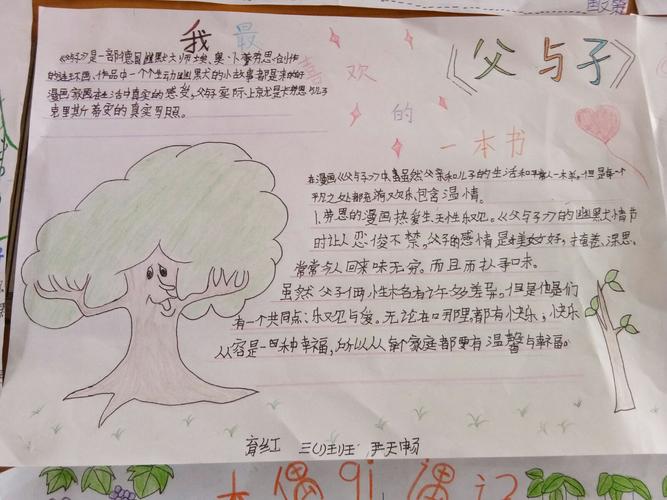 我最喜欢的一本书
《父与子》
《父与子》是一部德国幽默大师埃·奥·卜劳恩创作
的连环画、作品中一个个生动幽默的小故事都是来自于
漫画家在生活中真实的感受，父与子实际上就是卜劳恩与儿子
克里斯蒂安的真实写照。
在漫画《父与子》中，虽然父亲和儿子的生活和平常人一样。但是每一个
平凡之处都充满欢乐，包含温情。
卜劳恩的漫画热爱生天性乐观。《父与子》的幽默情节
时让人忍俊不禁。父子的感情是美好，善、深思、
常常令人回来味无穷。而且
虽然父子俩性格有许多差异。但是他是们
有一个共同点：乐观与爱。无论在哪里都有小快乐，快乐
从容是一种幸福，所以从从每个家庭都要有温馨与幸福。
育红 三(1)班 尹天畅
木偶奇遇记